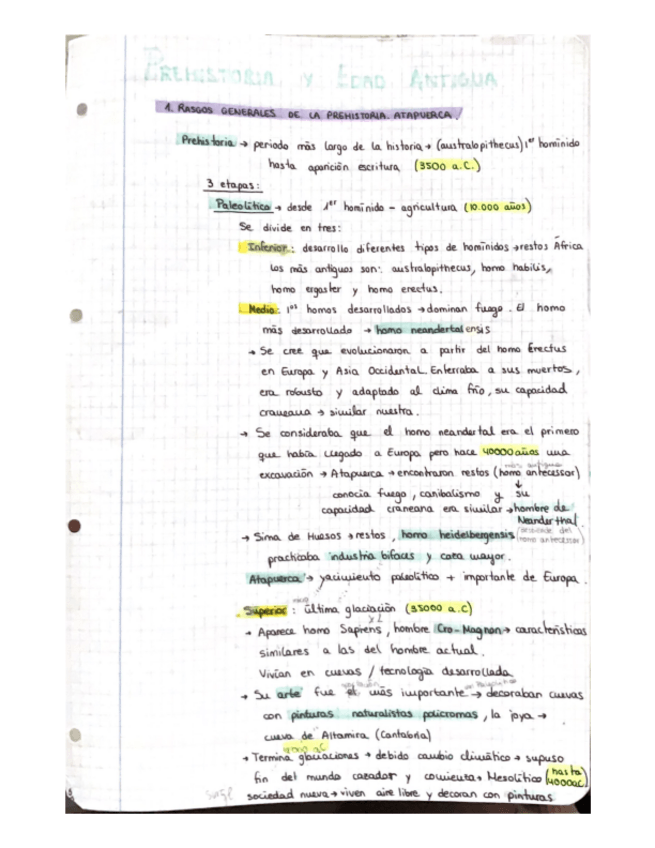 PREHISTORIA Y EDAD ANTIGUA
1. RASGOS GENERALES DE LA PREHISTORIA. ATAPUERCA.
Prehistoria → periodo más largo de la historia → (australopithecus) 1er homínido
hasta aparición escritura (3500 a.C.)
3 etapas:
Paleolítico → desde 1er homínido - agricultura (10.000 años)
Se divide en tres:
Inferior: desarrollo diferentes tipos de homínidos → restos África
Los más antiguos son: australopithecus, homo habilis,
homo ergaster y homo erectus.
Medio: 1os homos desarrollados → dominan fuego. El homo
más desarrollado → homo neandertalensis
→ Se cree que evolucionaron a partir del homo Erectus
en Europa y Asia Occidental. Enterraba a sus muertos,
era robusto y adaptado al clima frío, su capacidad
craneana → similar nuestra.
→ Se consideraba que el homo neandertal era el primero
que había llegado a Europa pero hace 40000 años una
más antiguo
excavación → Atapuerca → encontraron restos (homo antecessor)
↓
conocía fuego, canibalismo y su
capacidad craneana era similar → hombre de
Neanderthal
→ Sima de Huesos → restos, homo heidelbergensis (desciende del
homo antecessor)
practicaba industria bifaces y caza mayor.
Atapuerca → yacimiento paleolítico + importante de Europa.
Superior: última glaciación (35000 a.C)
→ Aparece homo Sapiens, hombre Cro-Magnon → características
similares a las del hombre actual.
Vivían en cuevas / tecnología desarrollada
→ Su arte fue el más importante → decoraban cuevas
con pinturas naturalistas policromas, la joya →
cueva de Altamira (Cantabria)
→ Termina glaciaciones → debido cambio climático → supuso
fin del mundo cazador y comienza → Mesolítico (hasta
4000 a.C)
surge sociedad nueva → viven aire libre y decoran con pinturas